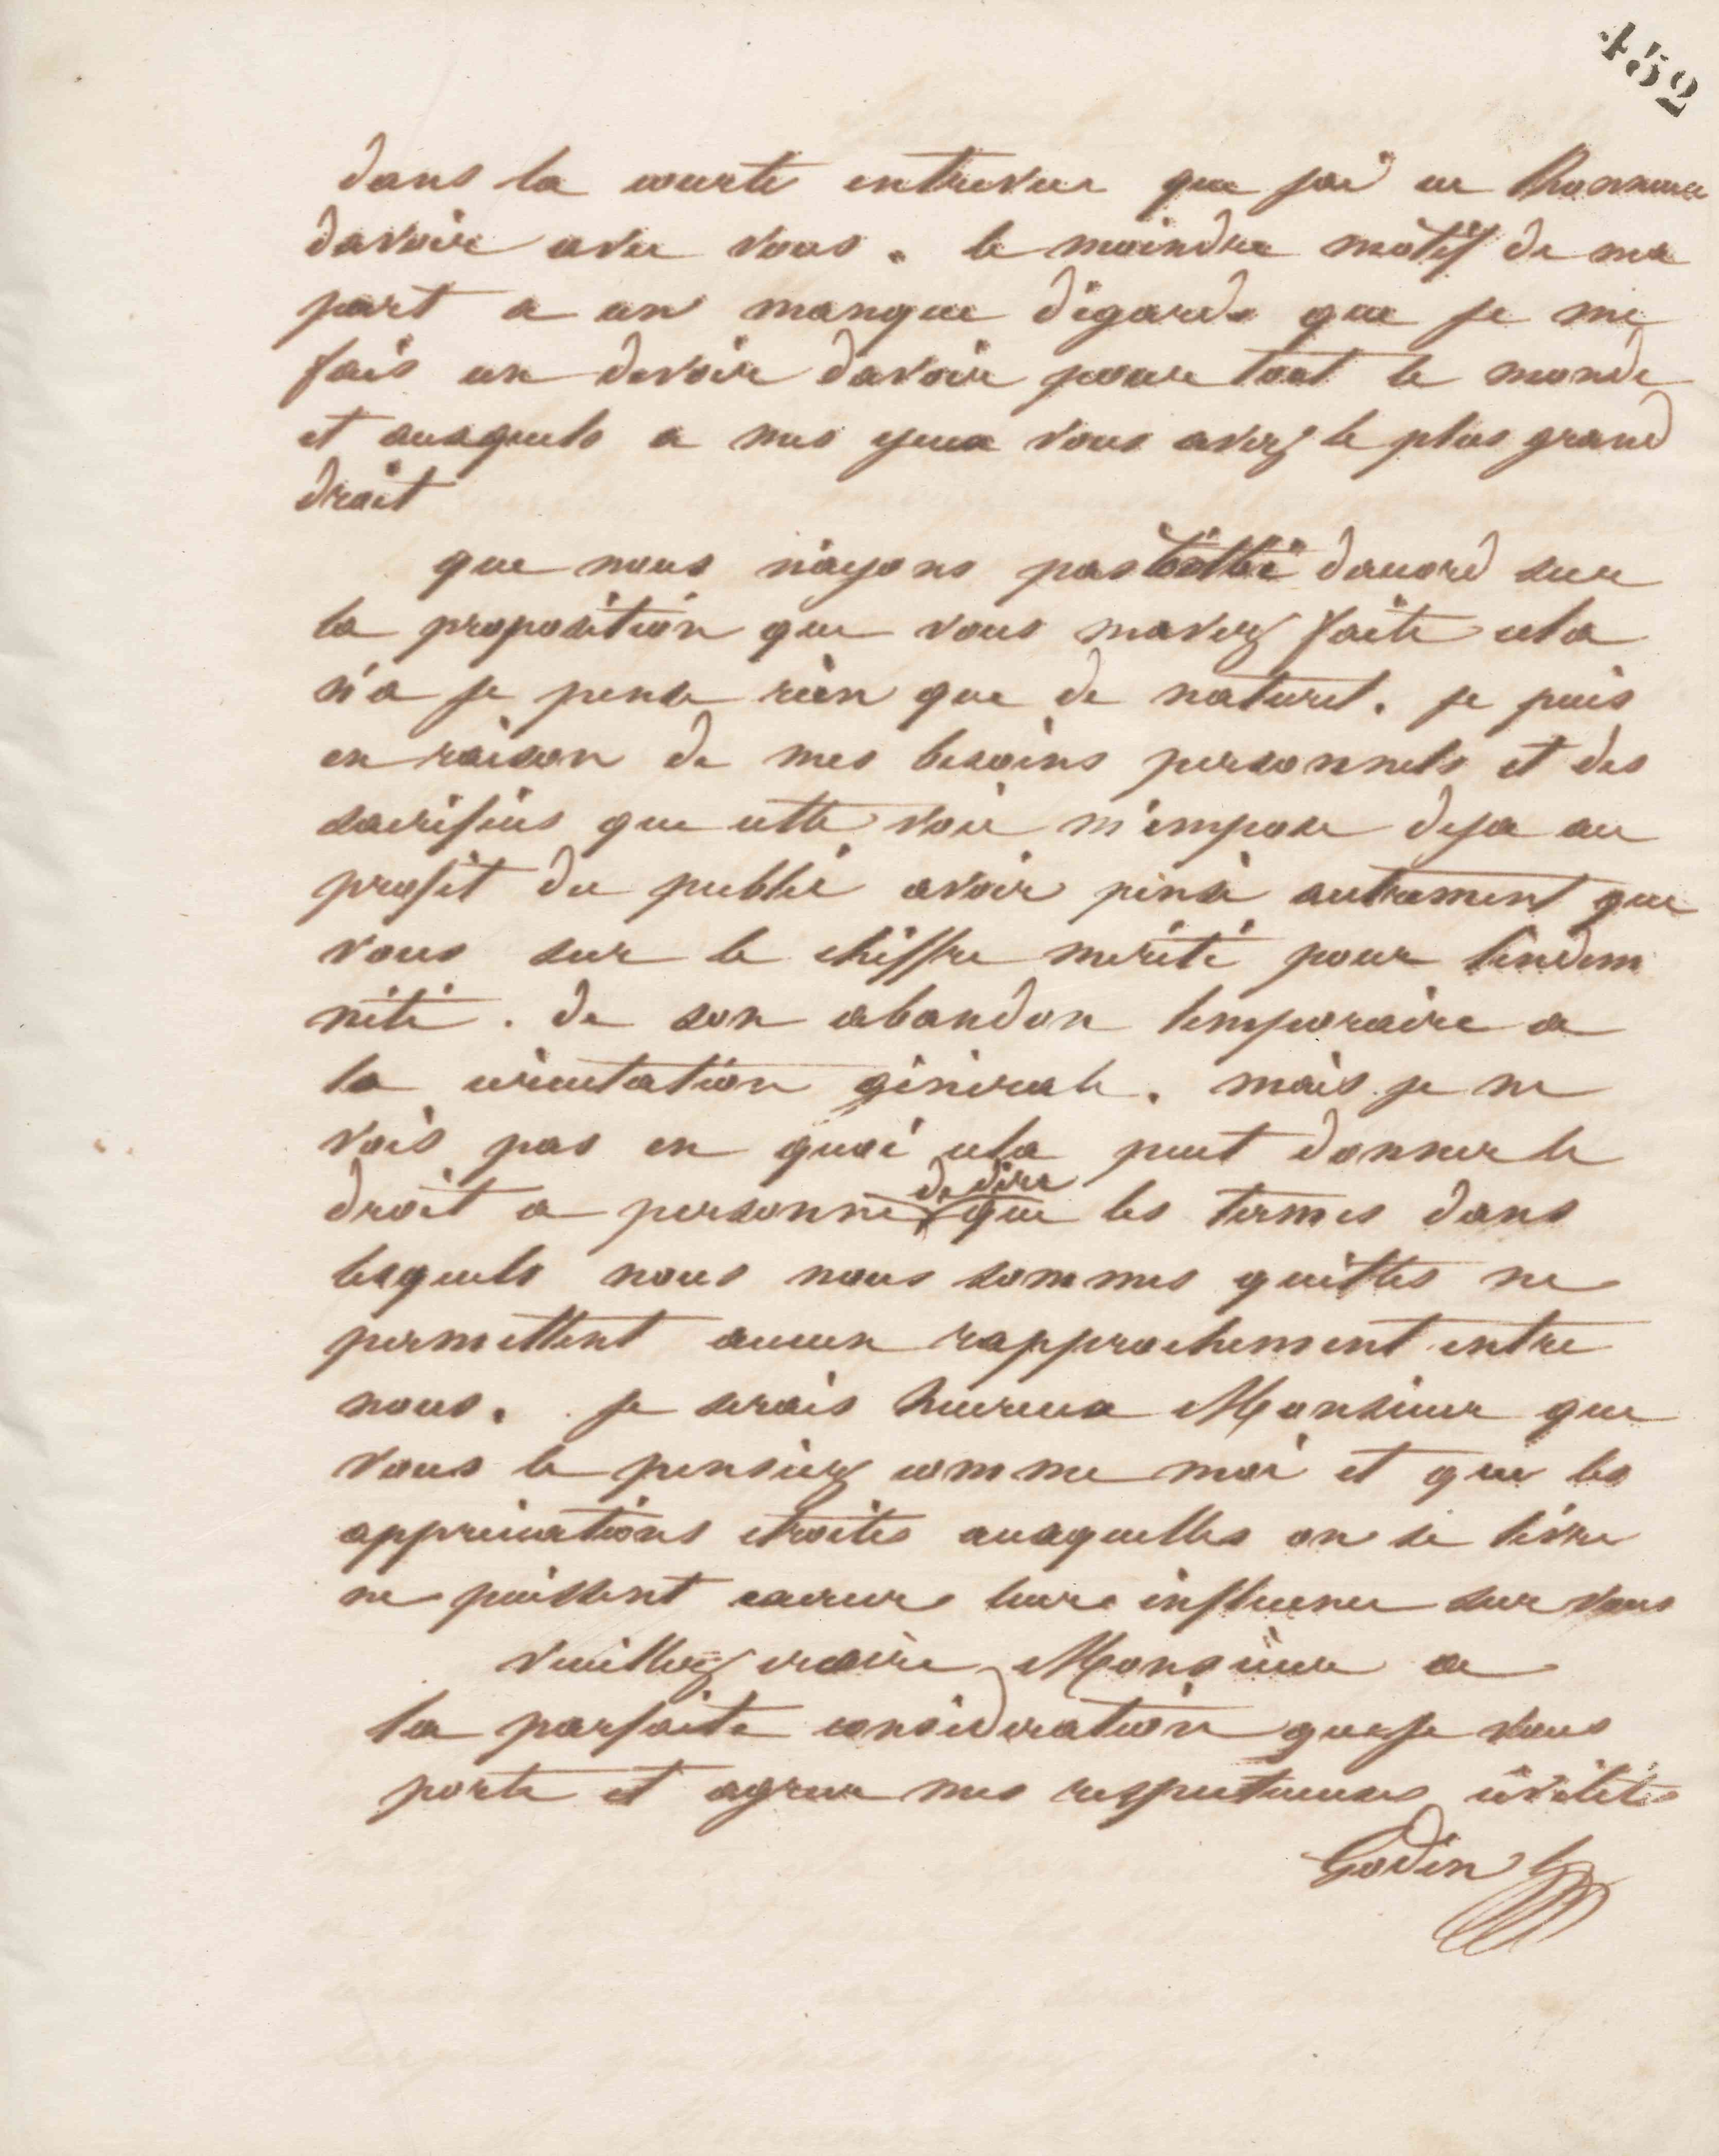 452
dans la courte entrevue que jai eu lhonneur
davoir avec vous. le moindre motif de ma
part a un manque d'égards que je me
fais un devoir davoir pour tout le monde
et auxquels a mes yeux vous avez le plus grand
droit
que nous n'ayons pas été daccord sur
la proposition que vous mavez faite cela
n'a je pense rien que de naturel. je puis
en raison de mes besoins personnels et des
sacrifices que cette voie m'impose deja au
profit du public avoir pensé autrement que
vous sur le chiffre mérité pour lindem
nité. de son abandon temporaire a
la circulation générale. mais je ne
vois pas en quoi cela peut donner le
droit a personne de dire que les termes dans
lesquels nous nous sommes quittés ne
permettent aucun rapprochement entre
nous. je serais heureux Monsieur que
vous le pensiez comme moi et que les
appréciations étroites auxquelles on se livre
ne puissent exercer leurs influence sur vous
veuillez croire Monsieur a
la parfaite considération que je vous
porte et agreer mes respectueuses civilités
Godin